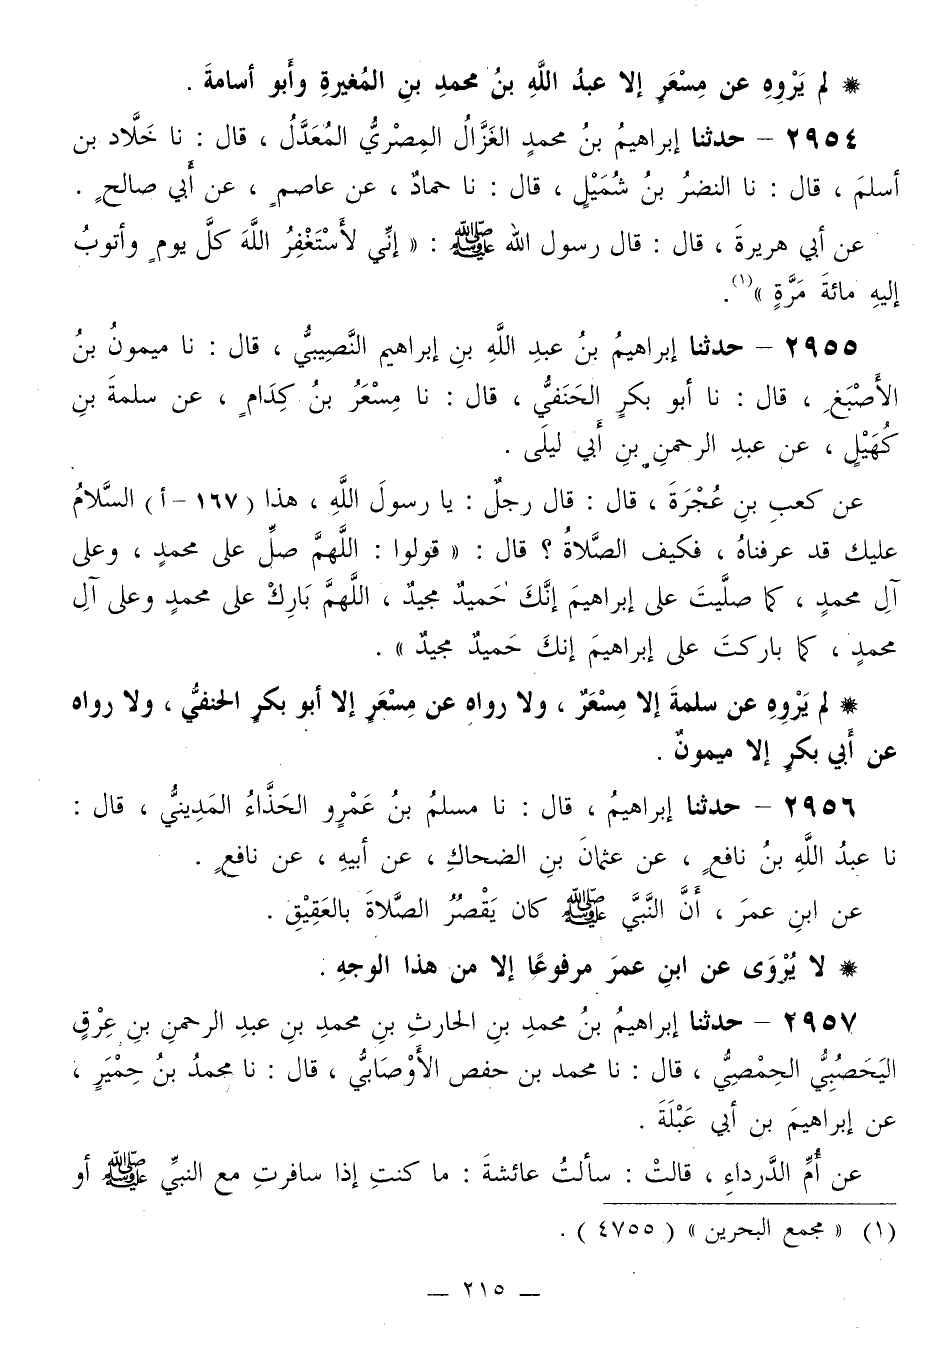 * لم يَرْوِهِ عن مِسْعَرٍ إلا عبدُ اللَّهِ بنُ محمدِ بنِ المُغيرةِ وأَبو أسامةَ .
٢٩٥٤ – حدثنا إبراهيمُ بنُ محمدٍ الغَزَّالُ المِصْرِيُّ المُعَدَّلُ ، قال : نا خَلَّاد بن
أسلمَ ، قال : نا النضرُ بنُ شُمَيْلٍ ، قال : نا حمادٌ ، عن عاصمٍ ، عن أَبي صالحٍ .
عن أبي هريرةَ ، قال : قال رسول الله ﷺ : « إنِّي لأَسْتَغْفِرُ اللَّهَ كلَّ يومٍ وأتوبُ
إليهِ مائةَ مَرَّةٍ »(١).
٢٩٥٥ – حدثنا إبراهيمُ بنُ عبدِ اللَّهِ بنِ إبراهيم النَّصِيبيُّ ، قال : نا ميمونُ بنُ
الأَصْبَغِ ، قال : نا أبو بكرٍ الحَنَفيُّ ، قال : نا مِسْعَرُ بنُ كِدَامٍ ، عن سلمةَ بنِ
كُهَيْلٍ ، عن عبدِ الرحمنِ بنِ أَبي ليلَى .
عن كعبِ بنِ عُجْرَةَ ، قال : قال رجلٌ : يا رسولَ اللَّهِ ، هذا ( ١٦٧ – أ ) السَّلامُ
عليك قد عرفناهُ ، فكيف الصَّلاةُ ؟ قال : « قولوا : اللَّهمَّ صلِّ على محمدٍ ، وعلى
آلِ محمدٍ ، كما صلَّيتَ على إبراهيمَ إنَّكَ حَميدٌ مجيدٌ ، اللَّهمَّ بَارِكْ على محمدٍ وعلى آلِ
محمدٍ ، كما باركتَ على إبراهيمَ إنكَ حَميدٌ مجيدٌ » .
* لم يَرْوِهِ عن سلمةَ إلا مِسْعَرٌ ، ولا رواه عن مِسْعَرٍ إلا أبو بكرٍ الحنفيُّ ، ولا رواه
عن أَبي بكرٍ إلا ميمونٌ .
٢٩٥٦ – حدثنا إبراهيمُ ، قال : نا مسلمُ بنُ عَمْرٍو الحَذَّاءُ المَدِينيُّ ، قال :
نا عبدُ اللَّهِ بنُ نافعٍ ، عن عثمانَ بنِ الضحاكِ ، عن أبيهِ ، عن نافعٍ .
عن ابنِ عمرَ ، أَنَّ النَّبيَّ ﷺ كان يَقْصُرُ الصَّلاةَ بالعَقِيْقِ .
* لا يُرْوَى عن ابنِ عمرَ مرفوعًا إلا من هذا الوجهِ .
٢٩٥٧ – حدثنا إبراهيمُ بنُ محمدِ بنِ الحارثِ بنِ محمدِ بنِ عبدِ الرحمنِ بنِ عِرْقٍ
اليَحَصُبيُّ الحِمْصِيُّ ، قال : نا محمد بن حفص الأَوْصَابيُّ ، قال : نا محمدُ بنُ حِمْيَرٍ ،
عن إبراهيمَ بن أبي عَبْلَةَ .
عن أُمِّ الدَّرداءِ ، قالتْ : سألتُ عائشةَ : ما كنتِ إذا سافرتِ مع النبيِّ ﷺ أو
(١) « مجمع البحرين » ( ٤٧٥٥ ) .
— ٢١٥ —